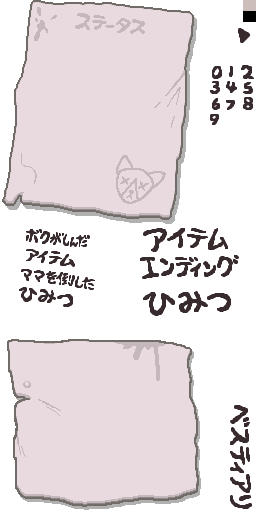 ステータス
0 1 2
3 4 5
6 7 8
9
ボクがしんだ
アイテム
ママを倒した
ひみつ
アイテム
エンディング
ひみつ
ベスティアリ